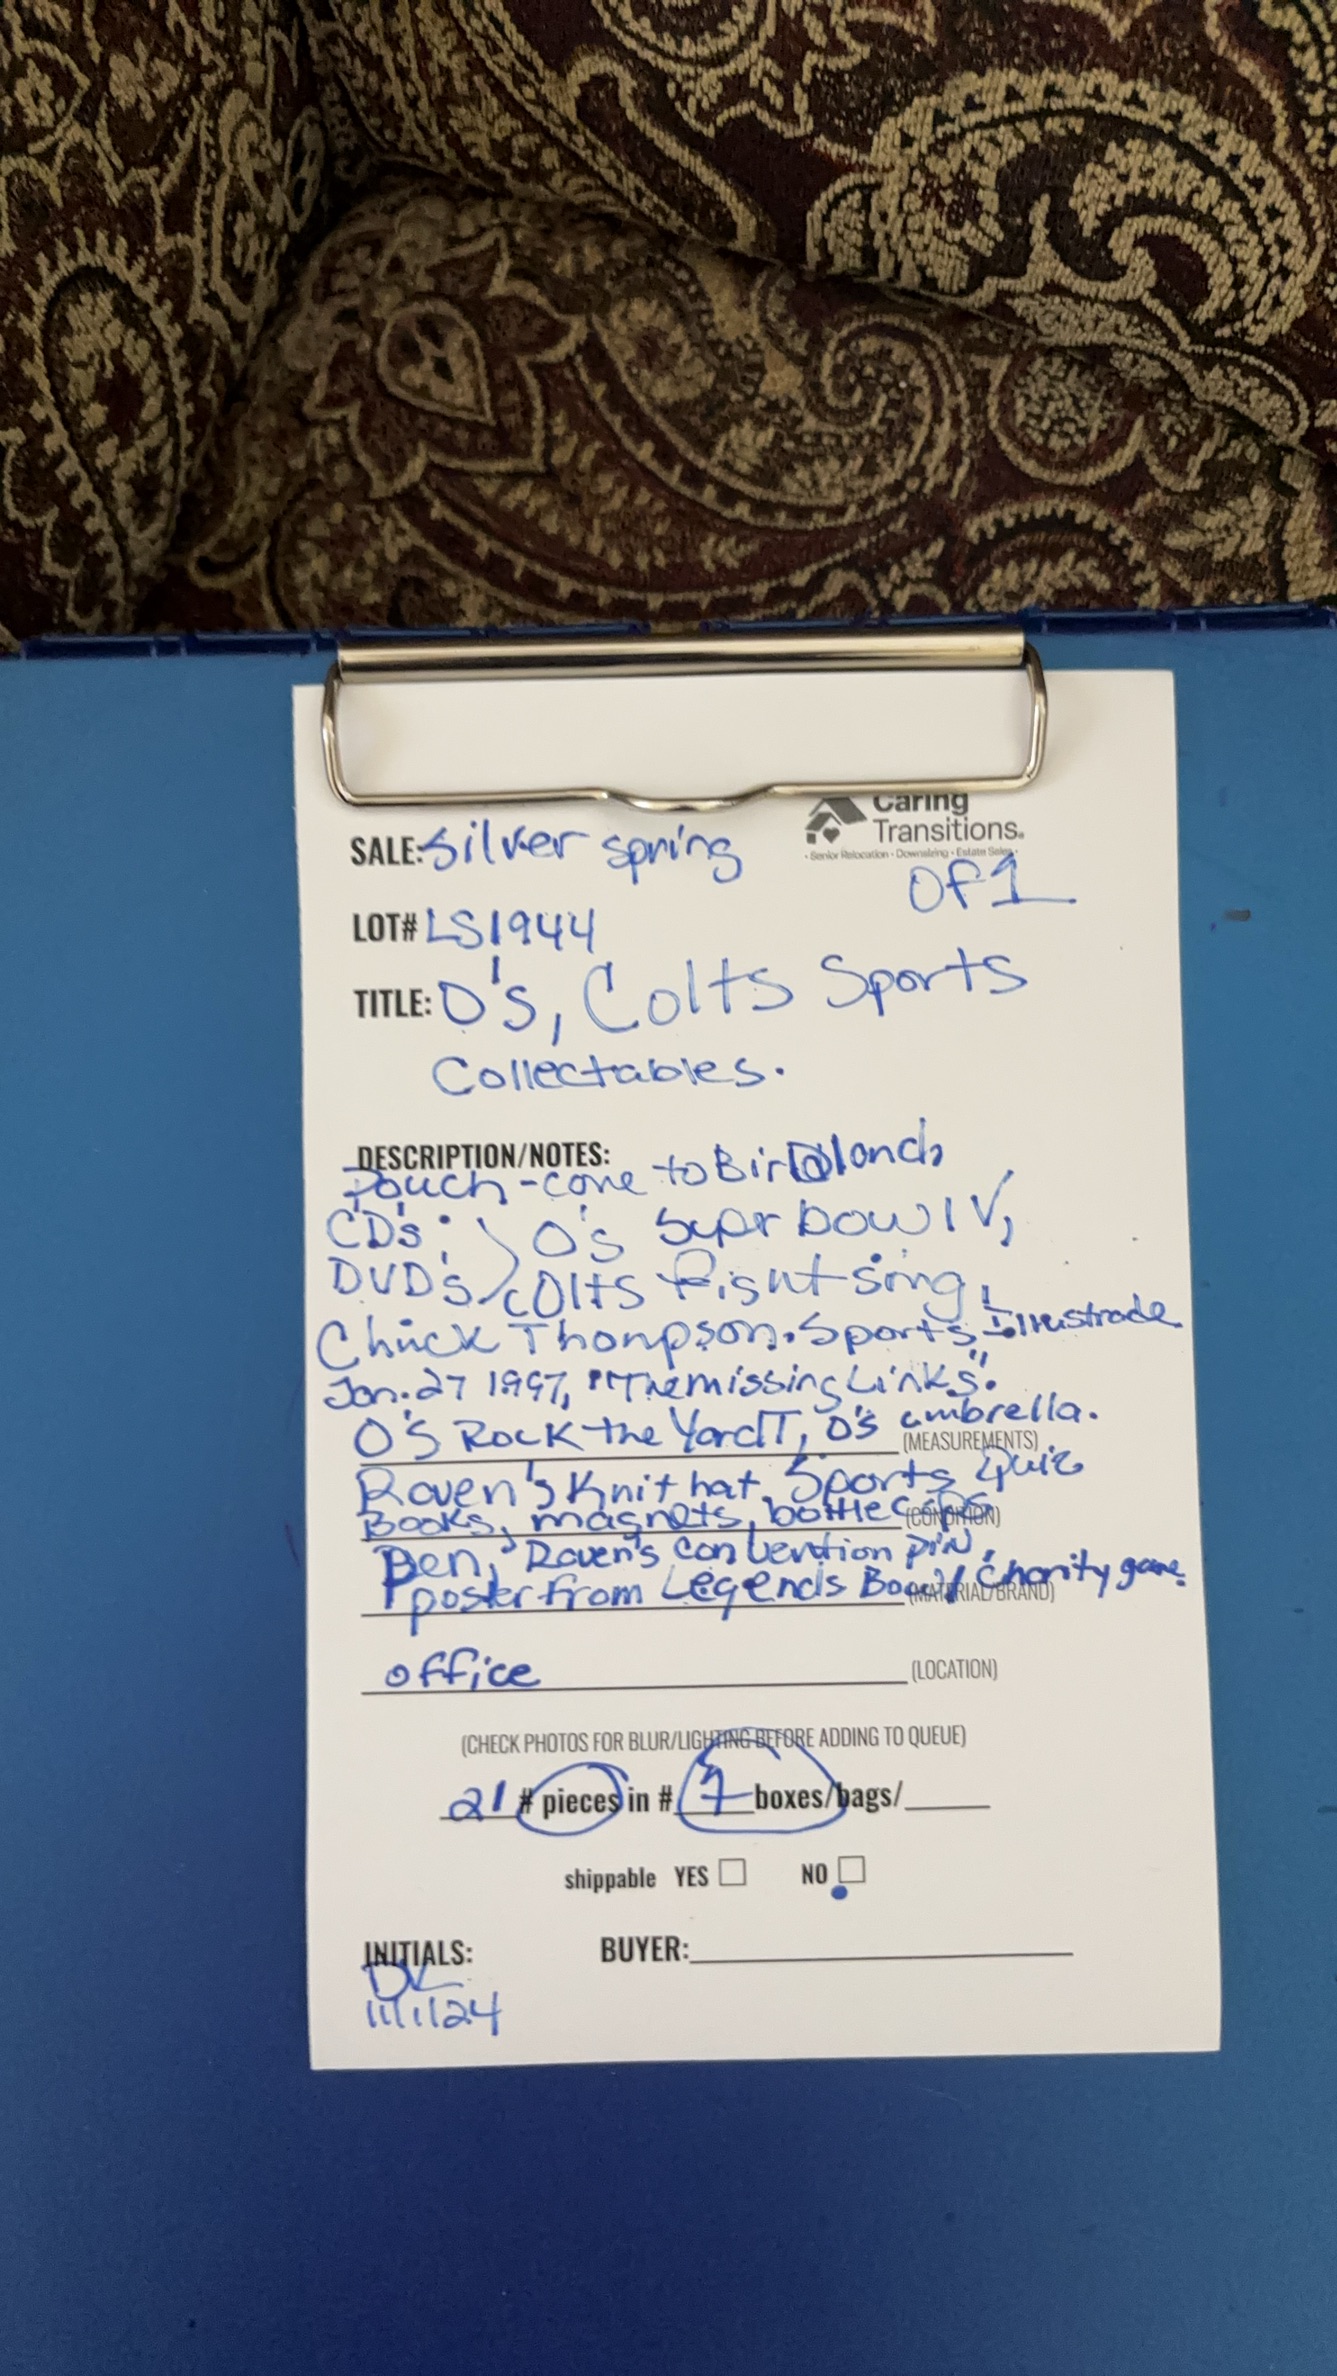 Caring
Transitions®
• Senior Relocation • Downsizing • Estate Sales •
SALE: Silver spring
OF1
LOT# LS1944
TITLE: O's, Colts Sports
Collectables.
DESCRIPTION/NOTES:
Pouch-come to Birdland,
CD's: O's Superbowl V,
DVD's Colts fight song,
Chuck Thompson. Sports Illustrade
Jan. 27 1997, "The missing Links".
O's Rock the Yard T, O's umbrella.
(MEASUREMENTS)
Raven's Knit hat, Sports Quiz
Books, magnets, bottle caps
(CONDITION)
Pen, Raven's convention pin,
poster from Legends Bowl Charity game.
(MATERIAL/BRAND)
office (LOCATION)
(CHECK PHOTOS FOR BLUR/LIGHTING BEFORE ADDING TO QUEUE)
21 # pieces in # boxes/bags/
shippable YES NO
INITIALS: BUYER:
DL
11/1/24